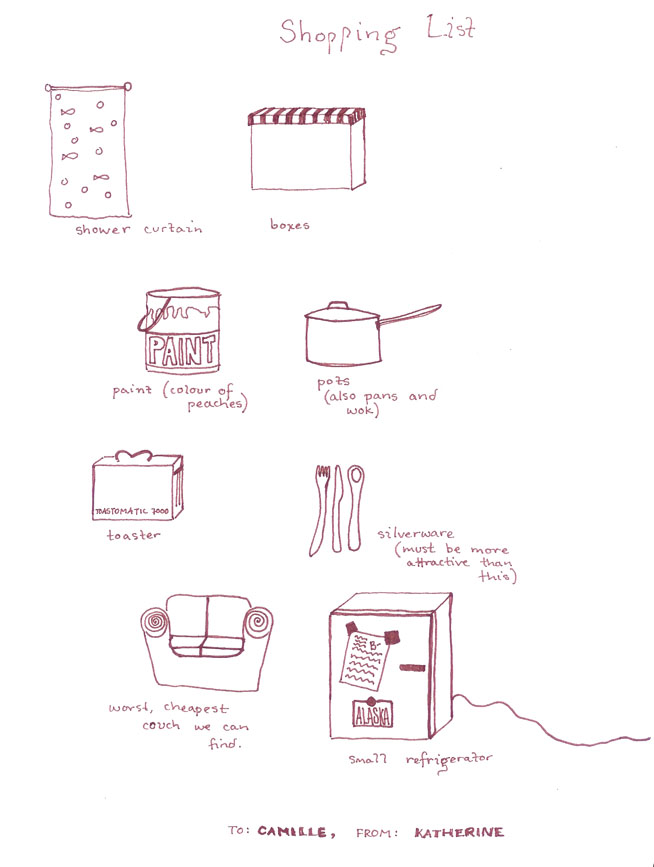 Shopping List
shower curtain
boxes
PAINT
paint (colour of
peaches)
pots
(also pans and
wok)
TOASTOMATIC 7000
toaster
silverware
(must be more
attractive than
this)
worst, cheapest
couch we can
find.
B-
ALASKA
small refrigerator
TO: CAMILLE, FROM: KATHERINE